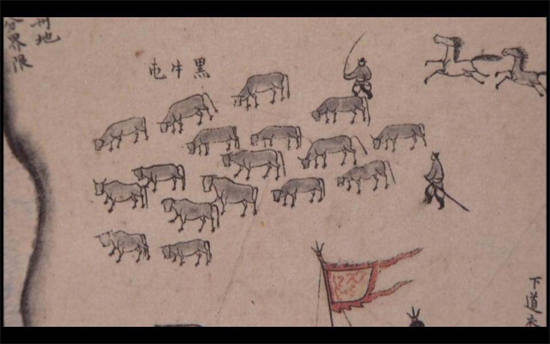 黑牛屯
地
界限
下道